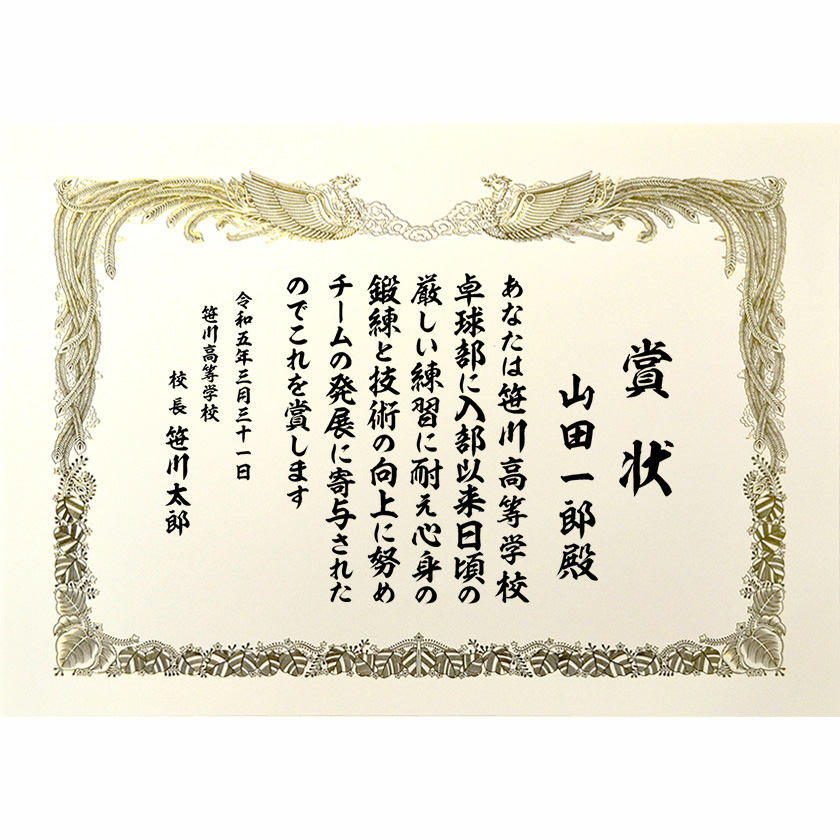 賞状
山田一郎殿
あなたは笹川高等学校
卓球部に入部以来日頃の
厳しい練習に耐え心身の
鍛練と技術の向上に努め
チームの発展に寄与された
のでこれを賞します
令和五年三月三十一日
笹川高等学校
校長 笹川太郎